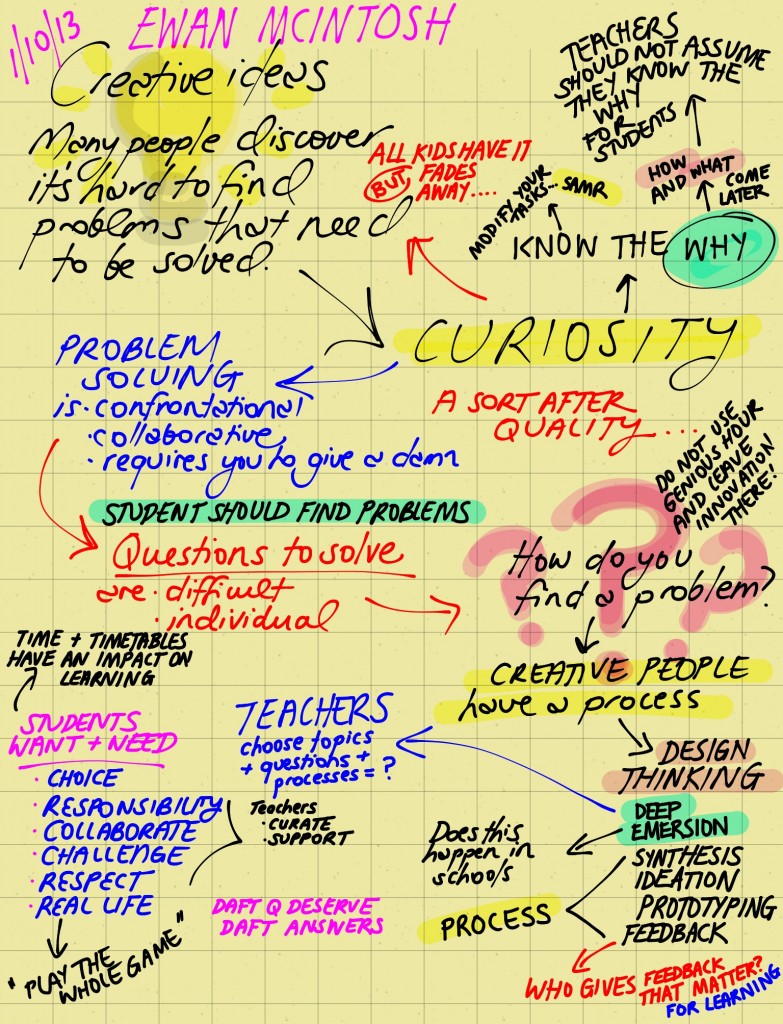 1/10/13
EWAN MCINTOSH
Creative ideas
Many people discover
it's hard to find
problems that need
to be solved.
ALL KIDS HAVE IT
BUT FADES
AWAY....
TEACHERS
SHOULD NOT ASSUME
THEY KNOW THE
WHY
FOR
STUDENTS
HOW
AND WHAT
COME
LATER
MODIFY YOUR
TASKS... SAMR
KNOW THE WHY
CURIOSITY
A SORT AFTER
QUALITY...
PROBLEM
SOLVING
is • confrontational
• collaborative
• requires you to give a damn
STUDENT SHOULD FIND PROBLEMS
Questions to solve
are • difficult
• individual
DO NOT USE
GENIOUS HOUR
AND LEAVE
INNOVATION
THERE!
???
How do you
find a problem?
CREATIVE PEOPLE
have a process
DESIGN
THINKING
DEEP
EMERSION
SYNTHESIS
IDEATION
PROTOTYPING
FEEDBACK
Does this
happen in
schools
PROCESS
WHO GIVES FEEDBACK
THAT MATTER?
FOR LEARNING
TEACHERS
choose topics
+ questions +
processes = ?
Teachers
• CURATE
• SUPPORT
TIME + TIMETABLES
HAVE AN IMPACT ON
LEARNING
STUDENTS
WANT + NEED
• CHOICE
• RESPONSIBILITY
• COLLABORATE
• CHALLENGE
• RESPECT
• REAL LIFE
"PLAY THE
WHOLE GAME"
DAFT Q DESERVE
DAFT ANSWERS